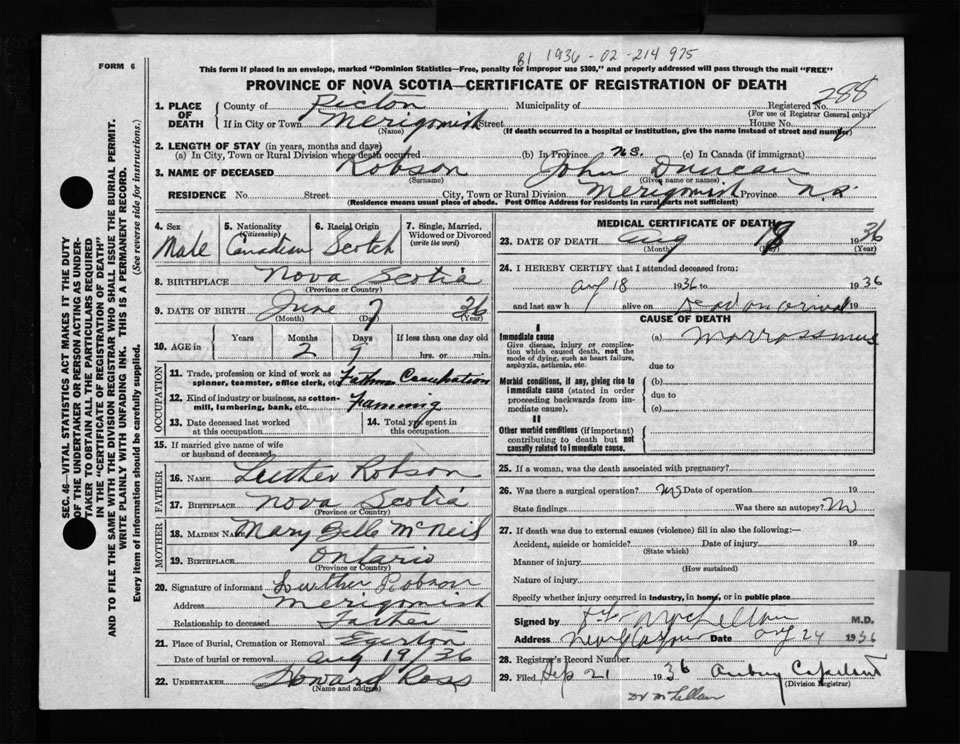 B1 1936-02-214 975
FORM 6
This form if placed in an envelope, marked "Dominion Statistics—Free, penalty for improper use $300," and properly addressed will pass through the mail "FREE"
PROVINCE OF NOVA SCOTIA—CERTIFICATE OF REGISTRATION OF DEATH
288
1. PLACE OF DEATH
County of Pictou Municipality of Registered No.
(For use of Registrar General only)
If in City or Town Merigomish Street House No.
(Name) (If death occurred in a hospital or institution, give the name instead of street and number)
2. LENGTH OF STAY (in years, months and days)
(a) In City, Town or Rural Division where death occurred (b) In Province N.S. (c) In Canada (if immigrant)
3. NAME OF DECEASED Robson John Duncan
(Surname) (Given name or names)
RESIDENCE No. Street City, Town or Rural Division Merigomish Province N.S.
(Residence means usual place of abode. Post Office Address for residents in rural parts not sufficient)
4. Sex Male
5. Nationality (Citizenship) Canadian
6. Racial Origin Scotch
7. Single, Married, Widowed or Divorced (write the word)
8. BIRTHPLACE Nova Scotia
(Province or Country)
9. DATE OF BIRTH June 7 36
(Month) (Day) (Year)
10. AGE in Years Months Days If less than one day old
2 9 hrs. or min.
OCCUPATION
11. Trade, profession or kind of work as spinner, teamster, office clerk, etc. Fathers Occupation
12. Kind of industry or business, as cotton-mill, lumbering, bank, etc. Farming
13. Date deceased last worked at this occupation
14. Total years spent in this occupation
15. If married give name of wife or husband of deceased
FATHER
16. NAME Luther Robson
17. BIRTHPLACE Nova Scotia
(Province or Country)
MOTHER
18. MAIDEN NAME Mary Belle McNeil
19. BIRTHPLACE Ontario
(Province or Country)
20. Signature of informant Luther Robson
Address Merigomish
Relationship to deceased Father
21. Place of Burial, Cremation or Removal Egerton
Date of burial or removal Aug 19/36
22. UNDERTAKER Howard Ross
(Name and address)
MEDICAL CERTIFICATE OF DEATH
23. DATE OF DEATH Aug 18 1936
(Month) (Day) (Year)
24. I HEREBY CERTIFY that I attended deceased from:
Aug 18 1936 to 1936
and last saw h alive on Dead on arival 19
CAUSE OF DEATH
I
Immediate cause
Give disease, injury or complication which caused death, not the mode of dying, such as heart failure, asphyxia, asthenia, etc.
(a) Marrossmus
due to
Morbid conditions, if any, giving rise to immediate cause (stated in order proceeding backwards from immediate cause).
(b)
due to
(c)
II
Other morbid conditions (if important) contributing to death but not causally related to immediate cause.
25. If a woman, was the death associated with pregnancy?
26. Was there a surgical operation? Date of operation 19
State findings Was there an autopsy?
27. If death was due to external causes (violence) fill in also the following:—
Accident, suicide or homicide? Date of injury 19
(State which)
Manner of injury
(How sustained)
Nature of injury
Specify whether injury occurred in industry, in home, or in public place
Signed by McLellan M.D.
Address New Glasgow Date Aug 24 1936
28. Registrar's Record Number
29. Filed Sep 21 1936
(Division Registrar)
Dr McLellan
SEC. 46—VITAL STATISTICS ACT MAKES IT THE DUTY
OF THE UNDERTAKER OR PERSON ACTING AS UNDER-
TAKER TO OBTAIN ALL THE PARTICULARS REQUIRED
IN THE "CERTIFICATE OF REGISTRATION OF DEATH"
AND TO FILE THE SAME WITH THE DIVISION REGISTRAR WHO SHALL ISSUE THE BURIAL PERMIT.
WRITE PLAINLY WITH UNFADING INK. THIS IS A PERMANENT RECORD.
Every item of information should be carefully supplied. (See reverse side for instructions.)